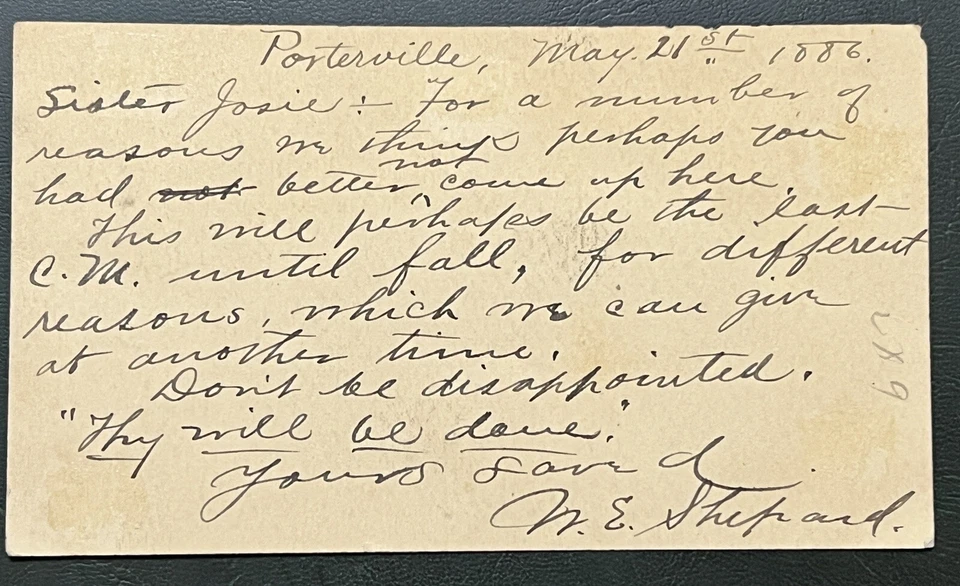 Porterville, May. 21st 1886.
Sister Josie :- For a number of
reasons we think perhaps you
had not better not come up here.
This will perhaps be the last
C.M. until fall, for different
reasons, which we can give
at another time.
Don't be disappointed.
"Thy will be done."
Yours saved
W. E. Shepard.